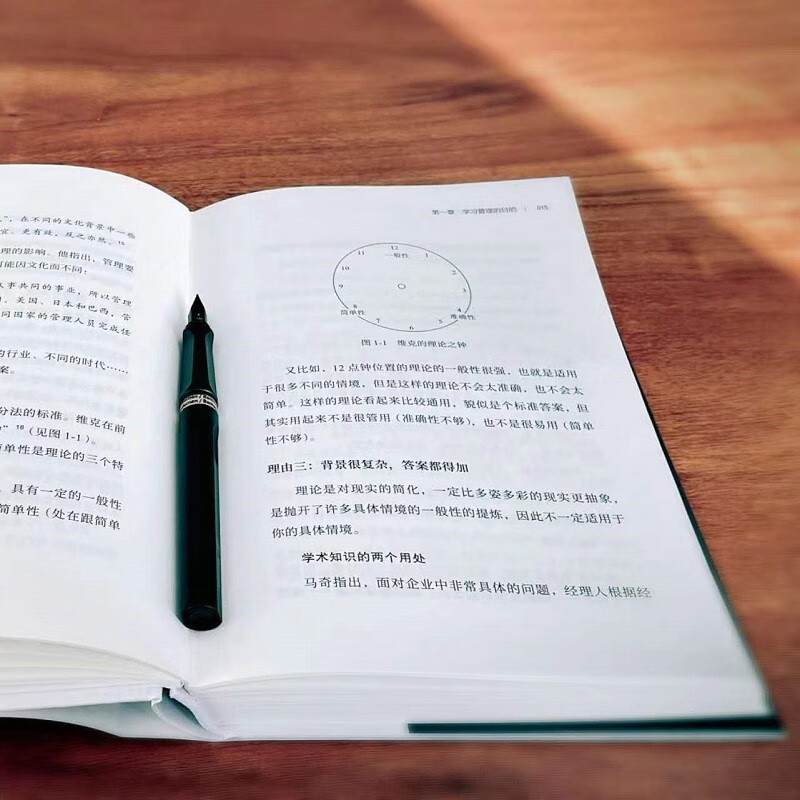 ”，在不同的文化背景中一些
宜、更有效，反之亦然。
理的影响。他指出，管理要
可能因文化而不同：
事共同的事业，所以管理
、美国、日本和巴西，管
同国家的管理人员完成任
的行业、不同的时代……
案。
分法的标准。维克在前
” 16（见图1-1）。
简单性是理论的三个特
，具有一定的一般性
简单性（处在跟简单
第一章 学习管理的目的 | 015
12
一般性
11
1
10
2
9
3
8
简单性
4
准确性
7
6
5
图1-1 维克的理论之钟
又比如，12点钟位置的理论的一般性很强，也就是适用
于很多不同的情境，但是这样的理论不会太准确，也不会太
简单。这样的理论看起来比较通用，貌似是个标准答案，但
其实用起来不是很管用（准确性不够），也不是很易用（简单
性不够）。
理由三：背景很复杂，答案都得加
理论是对现实的简化，一定比多姿多彩的现实更抽象，
是抛开了许多具体情境的一般性的提炼，因此不一定适用于
你的具体情境。
学术知识的两个用处
马奇指出，面对企业中非常具体的问题，经理人根据经